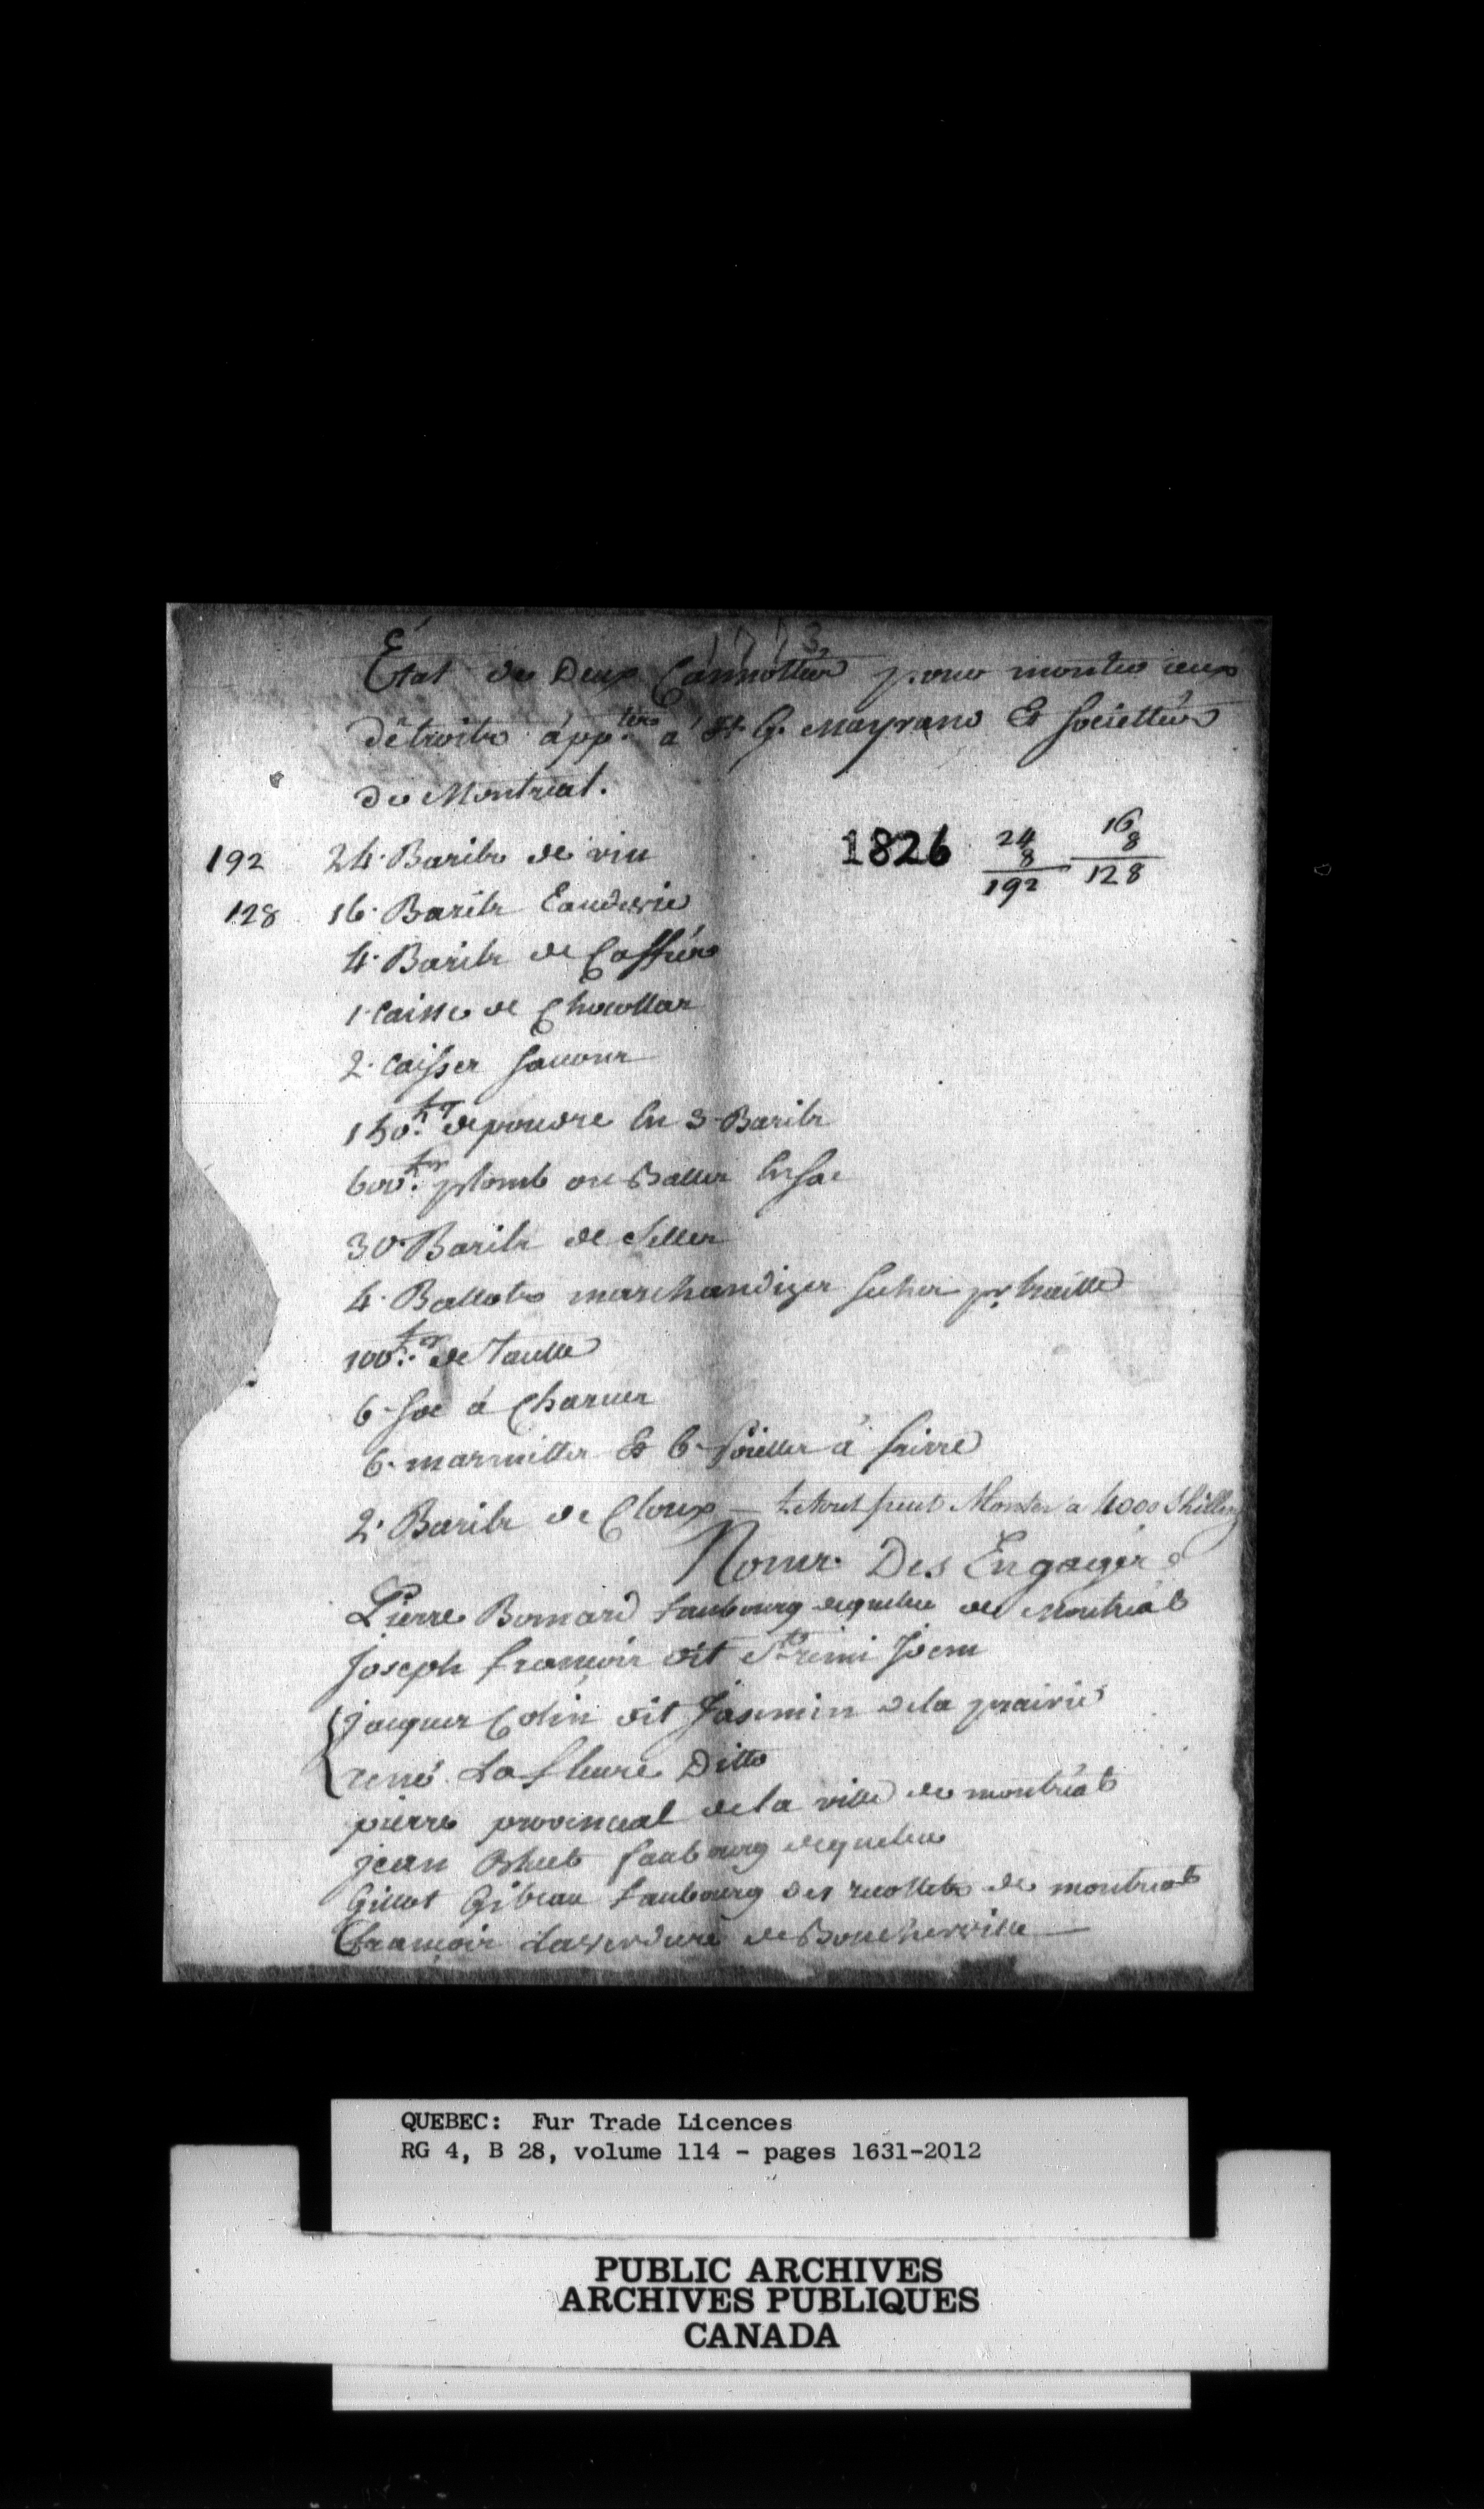 1773
État de Deux Cannottes pour monter aux
détroits áppten á St. G. Mayrand Et Societtés
de Montreal.
1826
24 8 192
16 8 128
192 24. Barils de vin
128 16. Barils Eaudevie
4. Barils de Caffées
1. Caisse de Chocollar
2. Caisses Savons
150.ts de poudre En 3 Barils
600.ts plomb ou Balles En Sac
30. Barils de Selles
4. Ballots marchandizes Seches pr. traitte
100.ts de Taulle
6 Soc á Charues
6. marmittes Et 6. Poielles á frirre
2. Barils de Cloux — Le tout peut Monter a 4000 Shilling
Noms Des Engagés
Pierre Bomard faubourg de quebec de Montréal
Joseph françois dit St remi Idem
jacques Colin dit Jasemin de la prairie
rené Lafleure Ditto
pierre provencal de la ville de montréal
jean faubourg de quebec
Gillot Gibeau faubourg des recollets de montreal
françois Laverdure de Boucherville
QUEBEC: Fur Trade Licences
RG 4, B 28, volume 114 - pages 1631-2012
PUBLIC ARCHIVES
ARCHIVES PUBLIQUES
CANADA